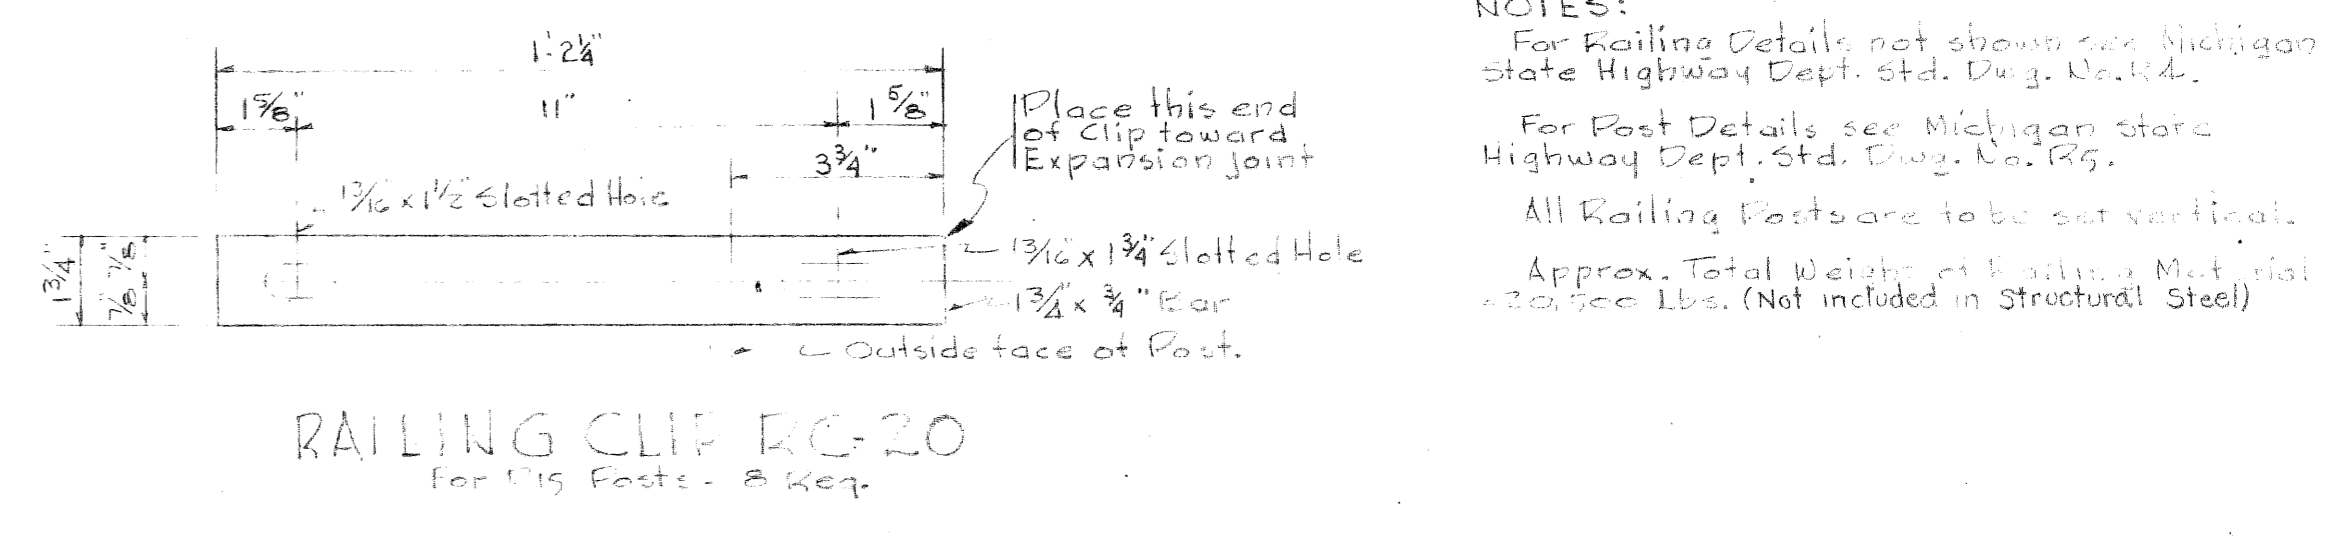 1'-2¼"
1⅝"
11"
1⅝"
3¾"
Place this end
of Clip toward
Expansion Joint
13/16" x 1½" Slotted Hole
13/16" x 1¾" Slotted Hole
1¾" x ¾" Bar
Outside face of Post.
1¾"
⅞" ⅞"
RAILING CLIP RC-20
For Posts - 8 Req.
NOTES:
For Railing Details not shown see Michigan
State Highway Dept. Std. Dwg. No. R4.
For Post Details see Michigan State
Highway Dept. Std. Dwg. No. R5.
All Railing Posts are to be set vertical.
Approx. Total Weight of Railing Material
20,500 Lbs. (Not included in Structural Steel)